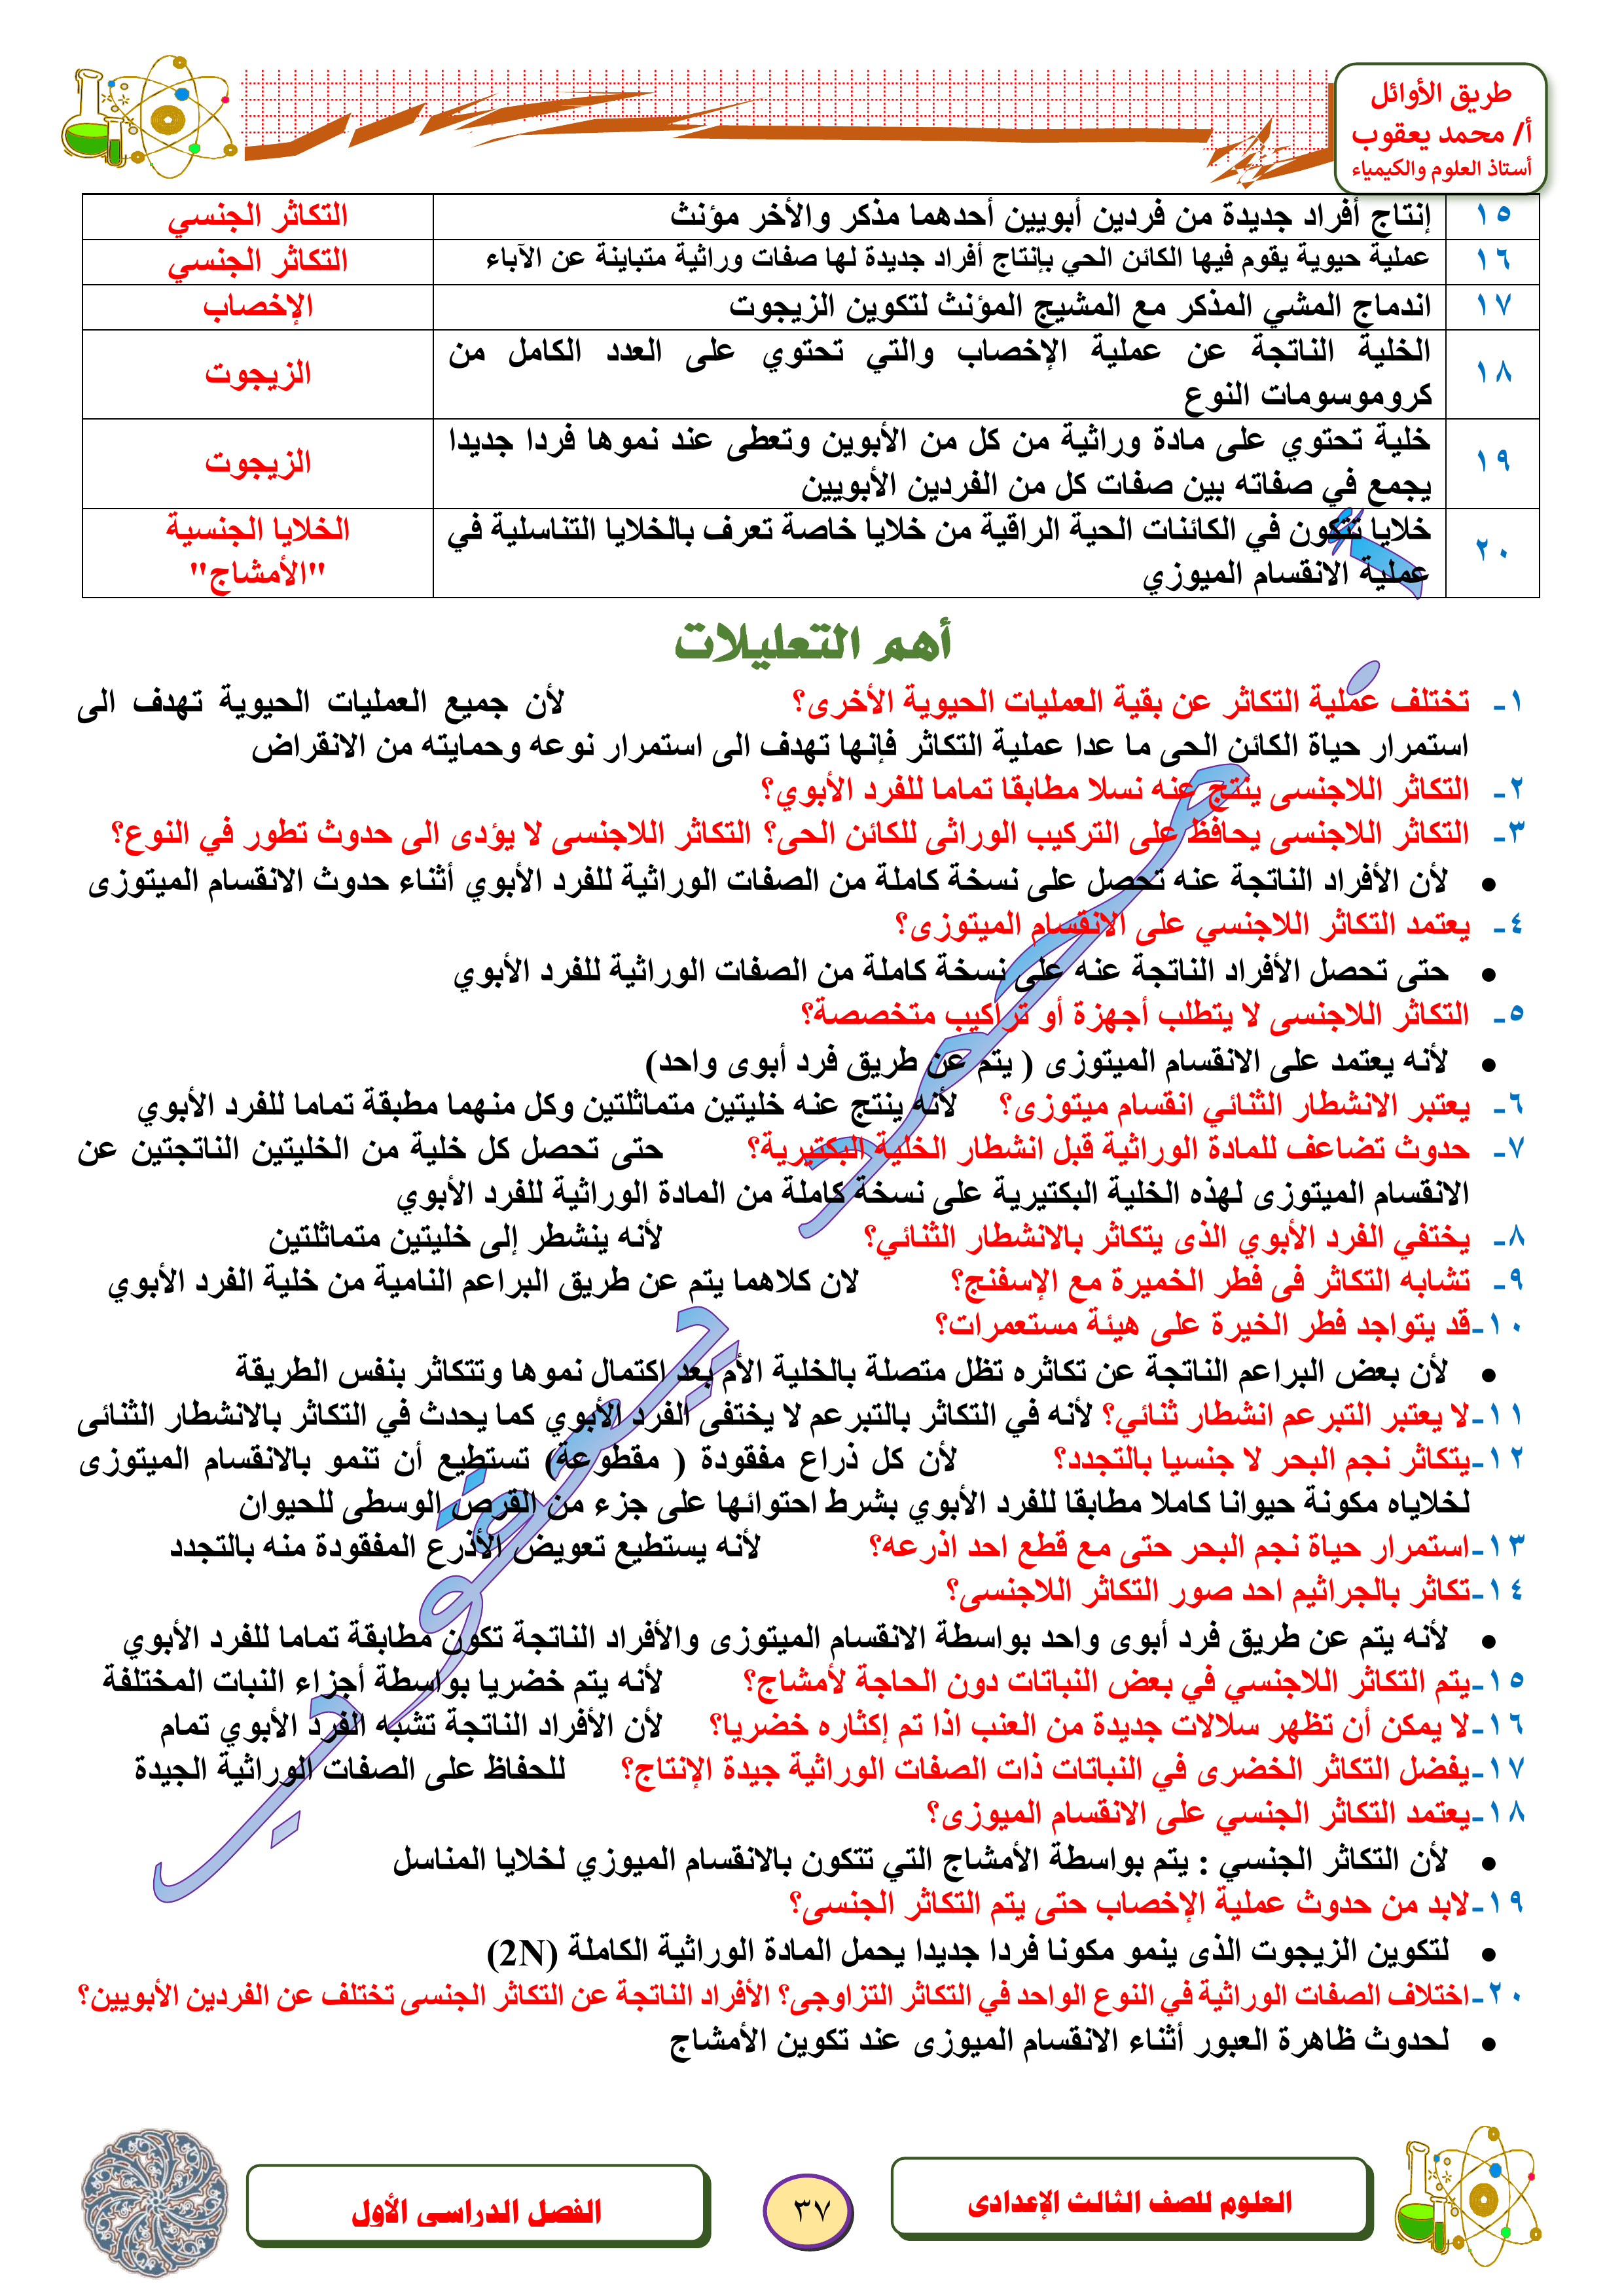 طريق الأوائل
أ/ محمد يعقوب
أستاذ العلوم والكيمياء
١٥ إنتاج أفراد جديدة من فردين أبويين أحدهما مذكر والأخر مؤنث التكاثر الجنسي
١٦ عملية حيوية يقوم فيها الكائن الحي بإنتاج أفراد جديدة لها صفات وراثية متباينة عن الآباء التكاثر الجنسي
١٧ اندماج المشي المذكر مع المشيج المؤنث لتكوين الزيجوت الإخصاب
١٨ الخلية الناتجة عن عملية الإخصاب والتي تحتوي على العدد الكامل من
كروموسومات النوع الزيجوت
١٩ خلية تحتوي على مادة وراثية من كل من الأبوين وتعطى عند نموها فردا جديدا
يجمع في صفاته بين صفات كل من الفردين الأبويين الزيجوت
٢٠ خلايا تتكون في الكائنات الحية الراقية من خلايا خاصة تعرف بالخلايا التناسلية في
عملية الانقسام الميوزي الخلايا الجنسية
"الأمشاج"
أهم التعليلات
١- تختلف عملية التكاثر عن بقية العمليات الحيوية الأخرى؟ لأن جميع العمليات الحيوية تهدف الى
استمرار حياة الكائن الحى ما عدا عملية التكاثر فإنها تهدف الى استمرار نوعه وحمايته من الانقراض
٢- التكاثر اللاجنسى ينتج عنه نسلا مطابقا تماما للفرد الأبوي؟
٣- التكاثر اللاجنسى يحافظ على التركيب الوراثى للكائن الحى؟ التكاثر اللاجنسى لا يؤدى الى حدوث تطور في النوع؟
• لأن الأفراد الناتجة عنه تحصل على نسخة كاملة من الصفات الوراثية للفرد الأبوي أثناء حدوث الانقسام الميتوزى
٤- يعتمد التكاثر اللاجنسي على الانقسام الميتوزى؟
• حتى تحصل الأفراد الناتجة عنه على نسخة كاملة من الصفات الوراثية للفرد الأبوي
٥- التكاثر اللاجنسى لا يتطلب أجهزة أو تراكيب متخصصة؟
• لأنه يعتمد على الانقسام الميتوزى ( يتم عن طريق فرد أبوى واحد)
٦- يعتبر الانشطار الثنائي انقسام ميتوزى؟ لأنه ينتج عنه خليتين متماثلتين وكل منهما مطبقة تماما للفرد الأبوي
٧- حدوث تضاعف للمادة الوراثية قبل انشطار الخلية البكتيرية؟ حتى تحصل كل خلية من الخليتين الناتجتين عن
الانقسام الميتوزى لهذه الخلية البكتيرية على نسخة كاملة من المادة الوراثية للفرد الأبوي
٨- يختفي الفرد الأبوي الذى يتكاثر بالانشطار الثنائي؟ لأنه ينشطر إلى خليتين متماثلتين
٩- تشابه التكاثر فى فطر الخميرة مع الإسفنج؟ لان كلاهما يتم عن طريق البراعم النامية من خلية الفرد الأبوي
١٠-قد يتواجد فطر الخيرة على هيئة مستعمرات؟
• لأن بعض البراعم الناتجة عن تكاثره تظل متصلة بالخلية الأم بعد اكتمال نموها وتتكاثر بنفس الطريقة
١١-لا يعتبر التبرعم انشطار ثنائي؟ لأنه في التكاثر بالتبرعم لا يختفى الفرد الأبوي كما يحدث في التكاثر بالانشطار الثنائى
١٢-يتكاثر نجم البحر لا جنسيا بالتجدد؟ لأن كل ذراع مفقودة ( مقطوعة) تستطيع أن تنمو بالانقسام الميتوزى
لخلاياه مكونة حيوانا كاملا مطابقا للفرد الأبوي بشرط احتوائها على جزء من القرص الوسطى للحيوان
١٣-استمرار حياة نجم البحر حتى مع قطع احد اذرعه؟ لأنه يستطيع تعويض الأذرع المفقودة منه بالتجدد
١٤-تكاثر بالجراثيم احد صور التكاثر اللاجنسى؟
• لأنه يتم عن طريق فرد أبوى واحد بواسطة الانقسام الميتوزى والأفراد الناتجة تكون مطابقة تماما للفرد الأبوي
١٥-يتم التكاثر اللاجنسي في بعض النباتات دون الحاجة لأمشاج؟ لأنه يتم خضريا بواسطة أجزاء النبات المختلفة
١٦-لا يمكن أن تظهر سلالات جديدة من العنب اذا تم إكثاره خضريا؟ لأن الأفراد الناتجة تشبه الفرد الأبوي تمام
١٧-يفضل التكاثر الخضرى في النباتات ذات الصفات الوراثية جيدة الإنتاج؟ للحفاظ على الصفات الوراثية الجيدة
١٨-يعتمد التكاثر الجنسي على الانقسام الميوزى؟
• لأن التكاثر الجنسي : يتم بواسطة الأمشاج التي تتكون بالانقسام الميوزي لخلايا المناسل
١٩-لابد من حدوث عملية الإخصاب حتى يتم التكاثر الجنسى؟
• لتكوين الزيجوت الذى ينمو مكونا فردا جديدا يحمل المادة الوراثية الكاملة (2N)
٢٠-اختلاف الصفات الوراثية في النوع الواحد في التكاثر التزاوجى؟ الأفراد الناتجة عن التكاثر الجنسى تختلف عن الفردين الأبويين؟
• لحدوث ظاهرة العبور أثناء الانقسام الميوزى عند تكوين الأمشاج
أ. محمد يعقوب
العلوم للصف الثالث الإعدادى
٣٧
الفصل الدراسى الأول